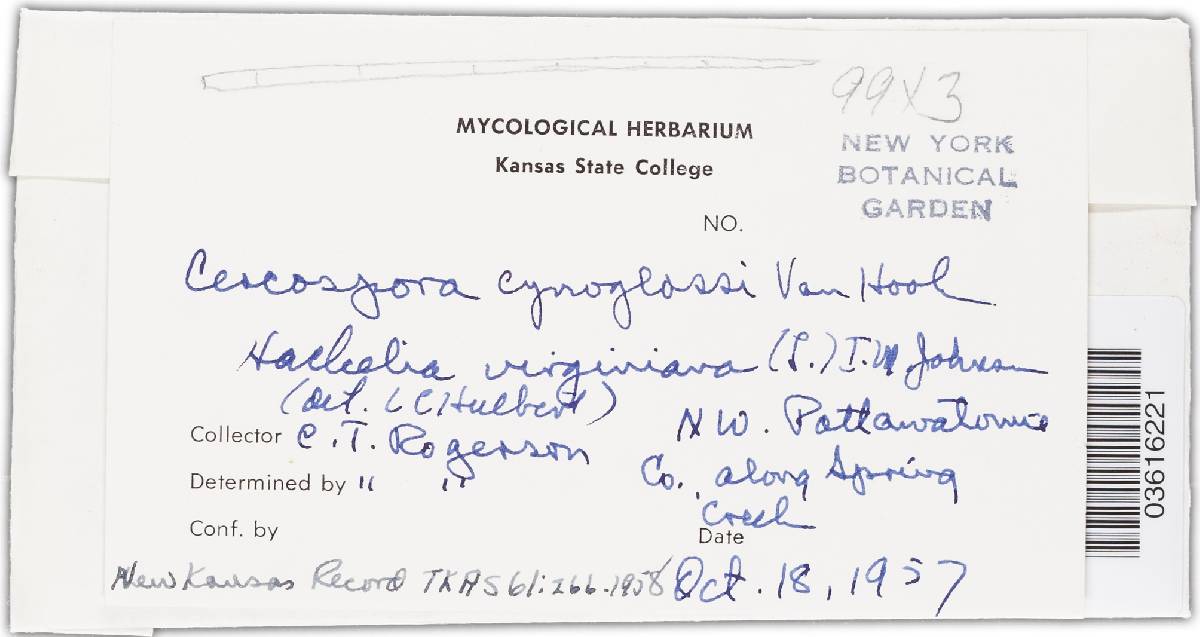 99X3
MYCOLOGICAL HERBARIUM
Kansas State College
NEW YORK
BOTANICAL
GARDEN
NO.
Cercospora cynoglossi Van Hook
Hackelia virginiana (L.) I.M. Johnson
(Det. LC Hulbert)
Collector C.T. Rogerson
N W. Pottawatomie
Co., along Spring
Creek
Determined by " "
Conf. by
Date
Oct. 18, 1957
New Kansas Record TKAS 61:266.1958
03616221